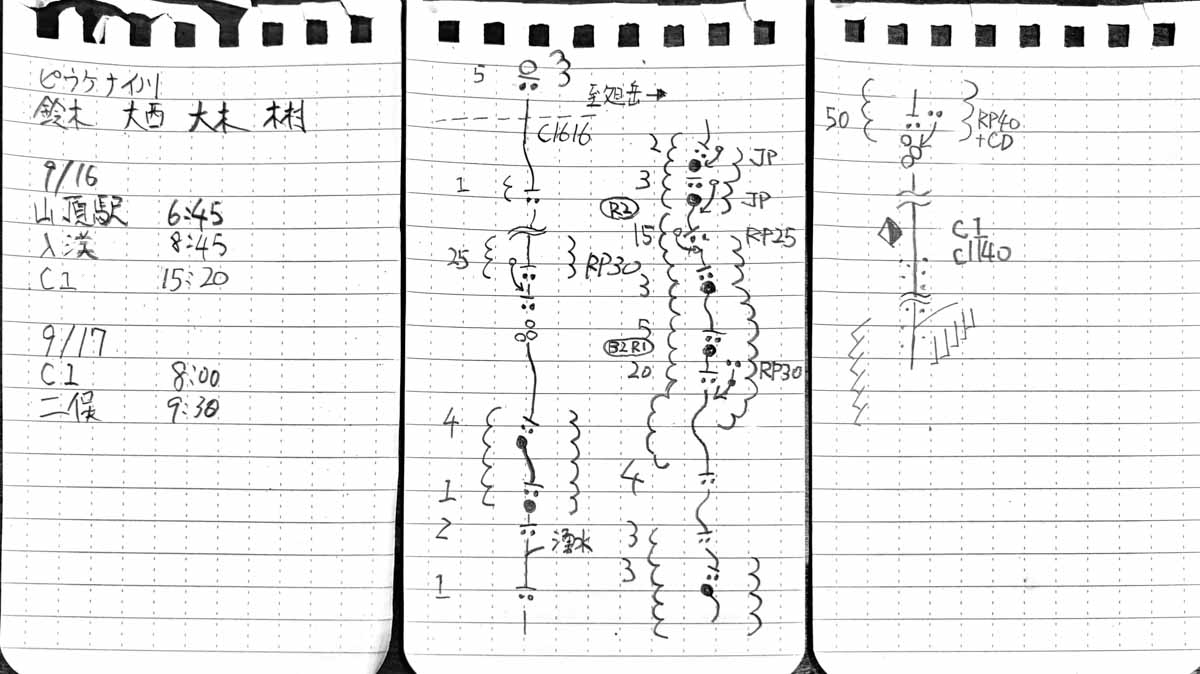 ピウケナイ川
鈴木 大西 大木 木村
9/16
山頂駅 6:45
入渓 8:45
C1 15:20
9/17
C1 8:00
二俣 9:30
5
C1616
1
25 RP30
4
1
2
湧水
1
至旭岳→
2 JP
3 JP
R2
15 RP25
3
5
B2R1
20 RP30
4
3
3
50 RP40
+CD
C1
C1140